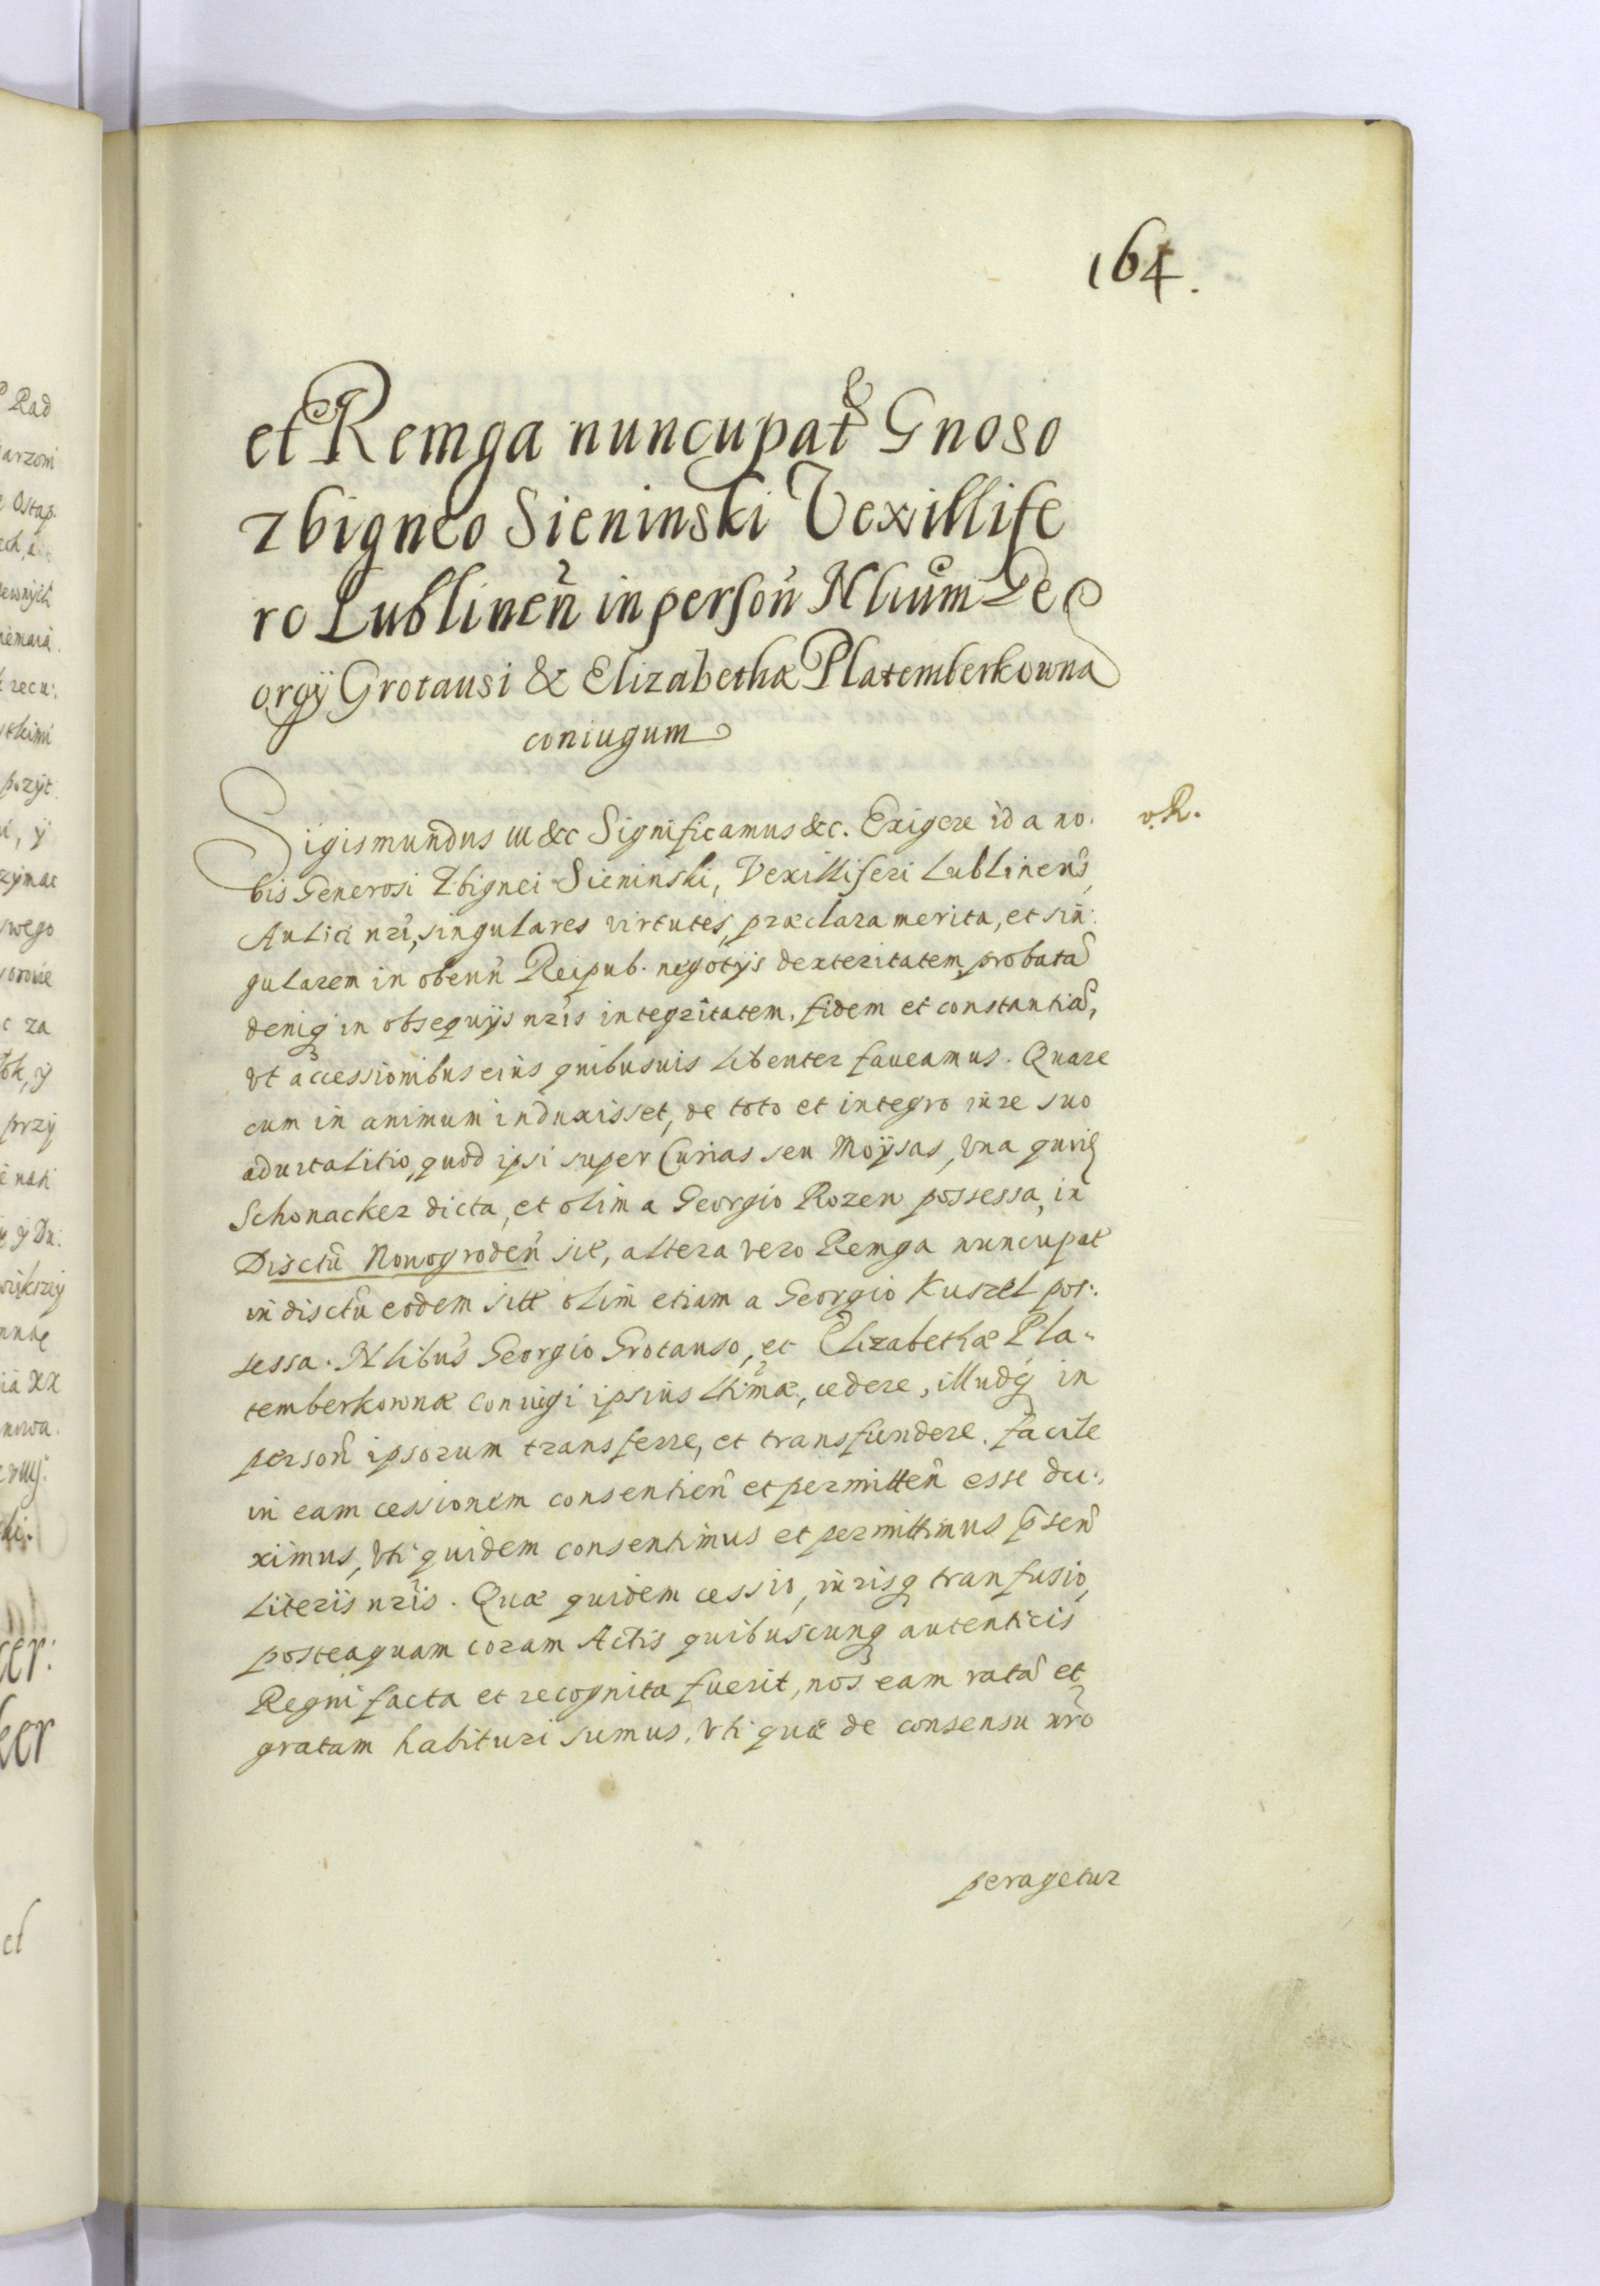 164.
et Remga nuncupat Gnoso
Zbigneo Sieninski Vexillife
ro Lublinen̄ in person̄ Nlium Ge
orgÿ Grotausi & Elizabetha Platemberkowna
coniugum
Sigismundus III &c Significamus &c. Exigere id a no:
v. R.
bis Generosi Zbignei Sieninski, Vexilliferi Lublinen̄,
Aulici nrī, singulares virtutes, præclara merita, et sin:
gularem in obeun̄ Reipub. negotÿs dexteritatem, probatā
deniq́ in obsequÿs nrīs integritatem, fidem et constantiā,
vt accessionibus eius quibusuis libenter faueamus. Quare
cum in animum induxisset, de toto et integro iure suo
aduitalitio, quod ipsi super Curias seu Moÿsas, vna
Schonacker dicta, et olim a Georgio Rozen possessa, in
Disctū Nouogroden̄ sit, altera vero Remga nuncupat
in disctū eodem sitt olim etiam a Georgio Kuszel pos:
sessa. Nlibus Georgio Grotauso, et Elizabethæ Pla-
temberkownæ coniugi ipsius ltimæ, cedere, illudq́ in
person̄ ipsorum transferre, et transfundere. facile
in eam cessionem consentien̄ et permitten̄ esse du:
ximus, vti quidem consentimus et permittimus p̄sen̄
literis nrīs. Quæ quidem cessio, iurisq́ tranfusio,
posteaquam coram Actis quibuscunq́ autenticis
Regni facta et recognita fuerit, nos eam ratā et
gratam habituri sumus, vti quæ de consensu nrō
peragetur